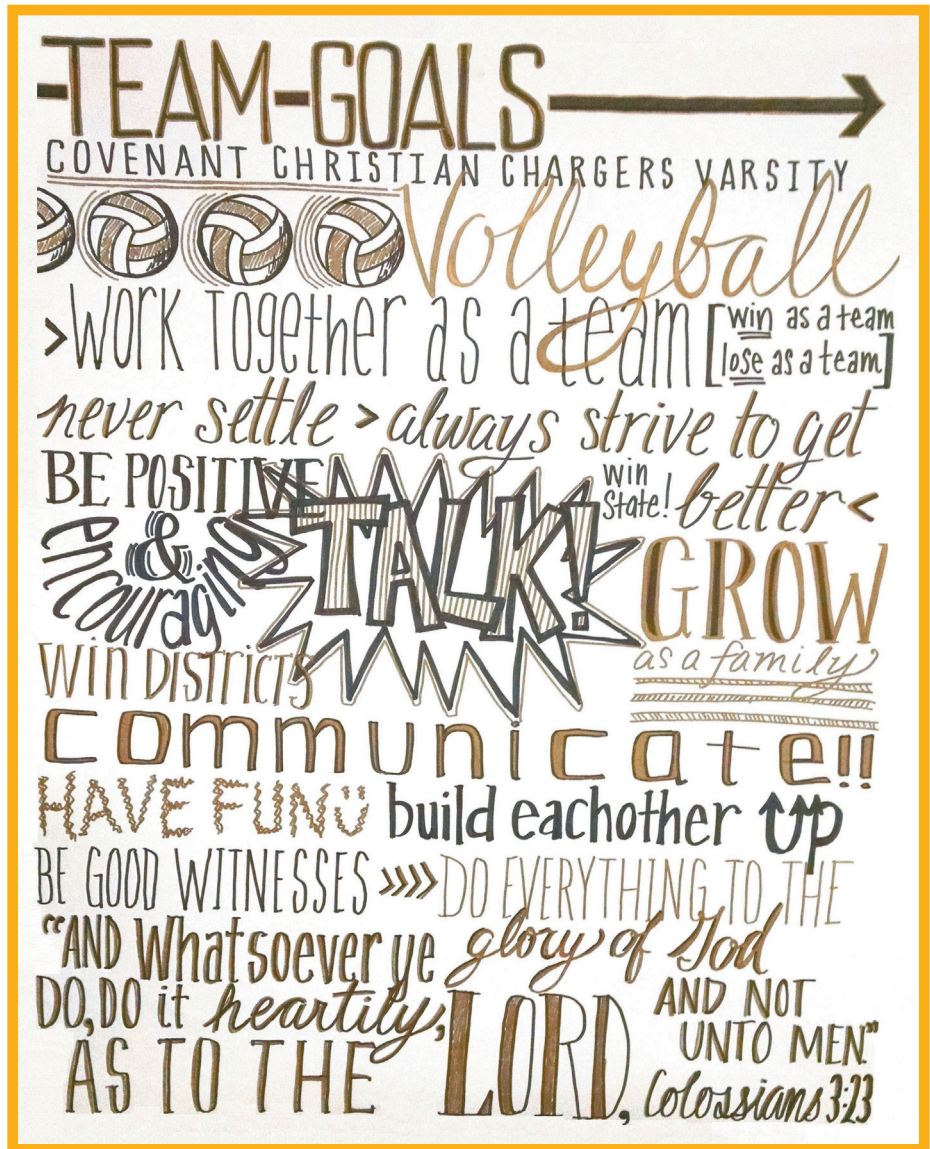 -TEAM-GOALS
COVENANT CHRISTIAN CHARGERS VARSITY
Volleyball
>Work Together as a team [win as a team
lose as a team]
never settle > always strive to get
better <
BE POSITIVE
&
encouraging
TALK!
win State!
GROW
as a family
Win DISTRICTS
communicate!!
HAVE FUN
build eachother UP
BE GOOD WITNESSES >>>> DO EVERYTHING TO THE
glory of God
"AND Whatsoever ye
DO, DO it heartily,
AS TO THE LORD,
AND NOT
UNTO MEN."
Colossians 3:23